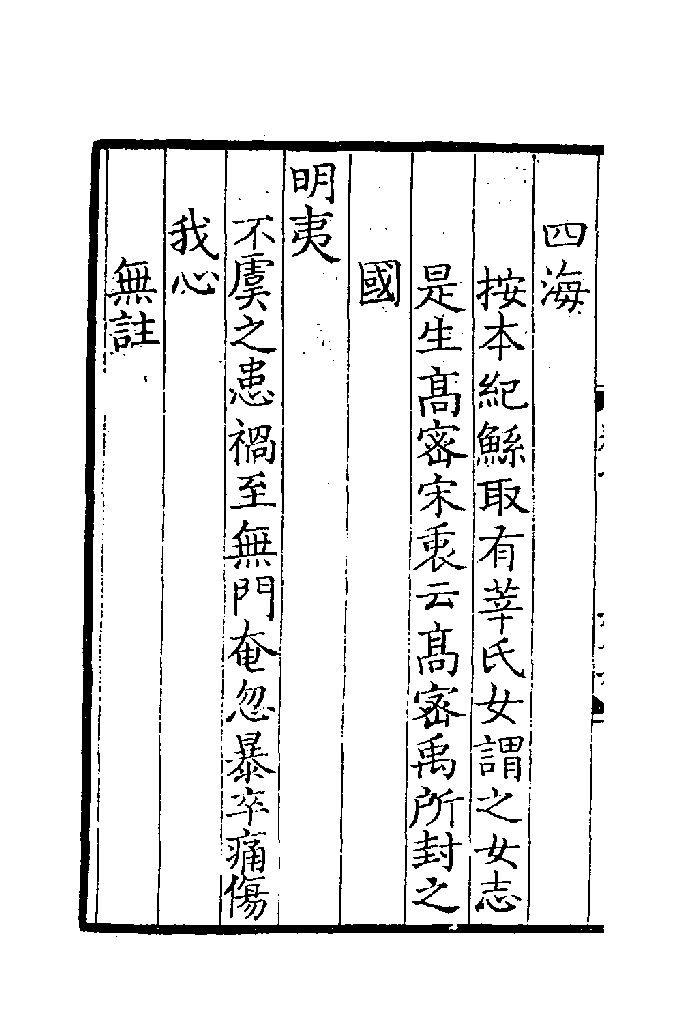 四海
按本紀鯀取有莘氏女謂之女志
是生髙宻宋衷云髙宻禹所封之
國
明夷
不虞之患禍至無門奄忽暴卒痛傷
我心
無註